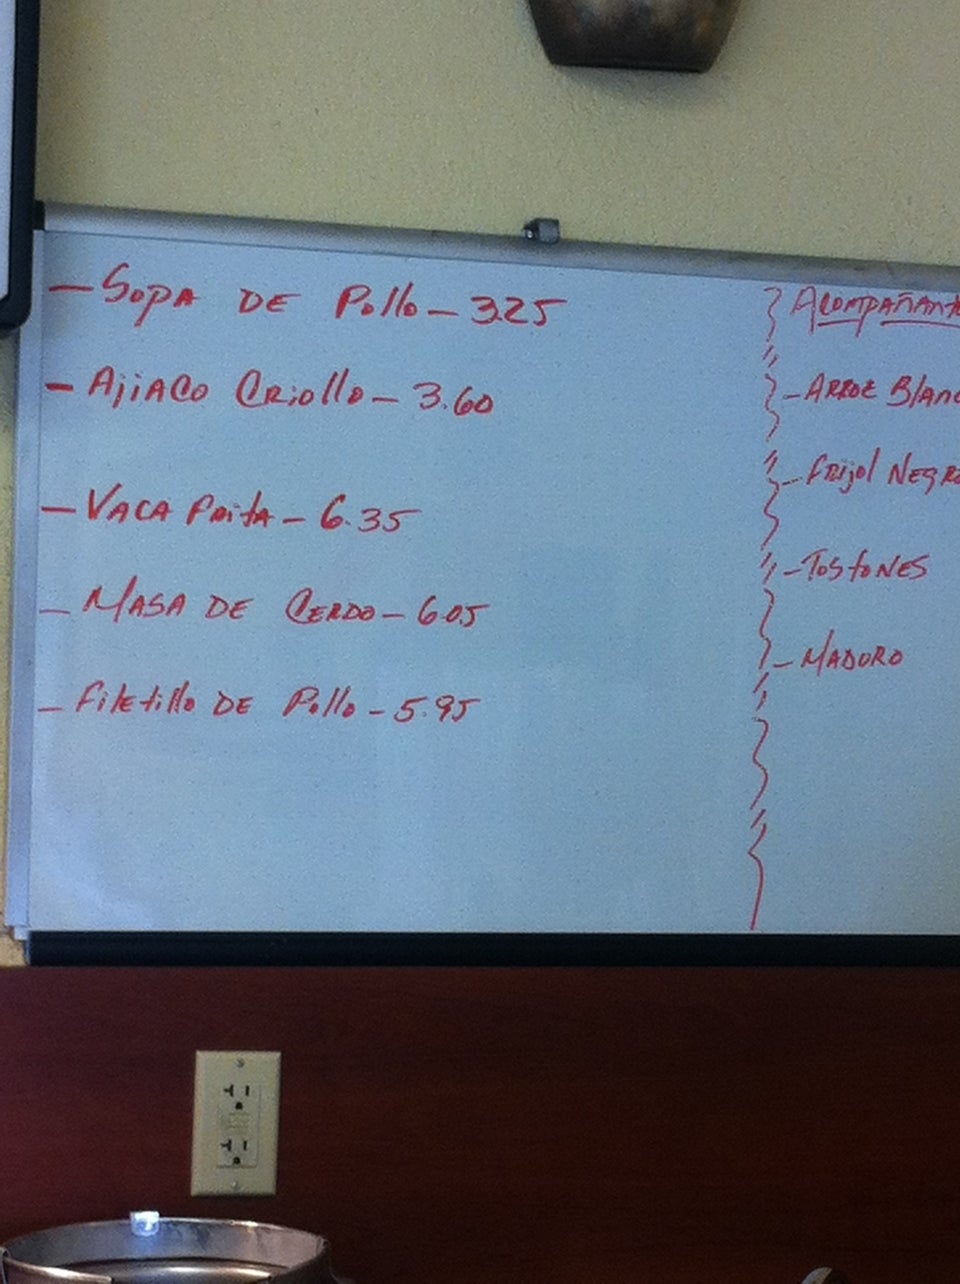 - Sopa DE Pollo - 3.25
- AjiACo CRiollo - 3.60
- VACA FRitA - 6.35
- MASA DE CERDO - 6.05
- FilEtillo DE Pollo - 5.95
ACOMPAÑANT
- ARROZ BlANC
- FRijol NEGRO
- TOSTONES
- MADURO